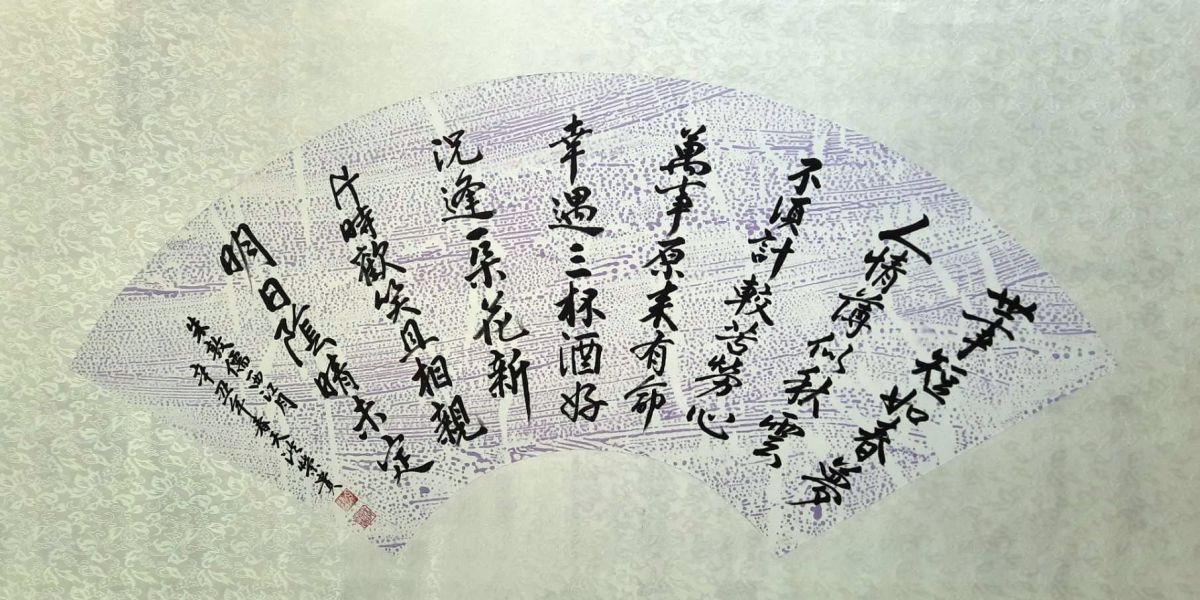 世事短如春夢
人情薄似秋雲
不須計較苦勞心
萬事原來有命
幸遇三杯酒好
況逢一朵花新
片時歡笑且相親
明日陰晴未定
朱敦儒西江月
辛丑年春天